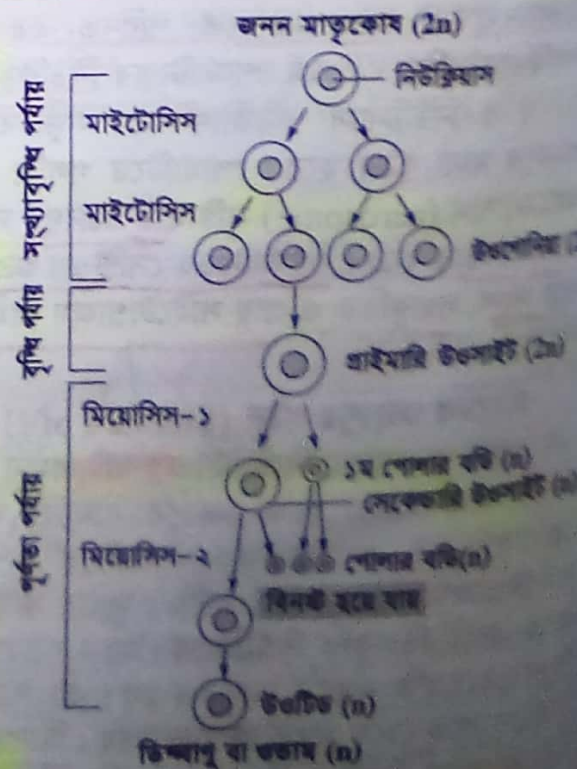 জনন মাতৃকোষ (2n)
নিউক্লিয়াস
সংখ্যাবৃদ্ধি পর্যায়
মাইটোসিস
মাইটোসিস
উওগোনিয়া
বৃদ্ধি পর্যায়
প্রাইমারি উওসাইট (2n)
পূর্ণতা পর্যায়
মিয়োসিস-১
১ম পোলার বডি (n)
সেকেন্ডারি উওসাইট (n)
মিয়োসিস-২
পোলার বডি(n)
বিনষ্ট হয়ে যায়
উওটিড (n)
ডিম্বাণু বা ওভাম (n)